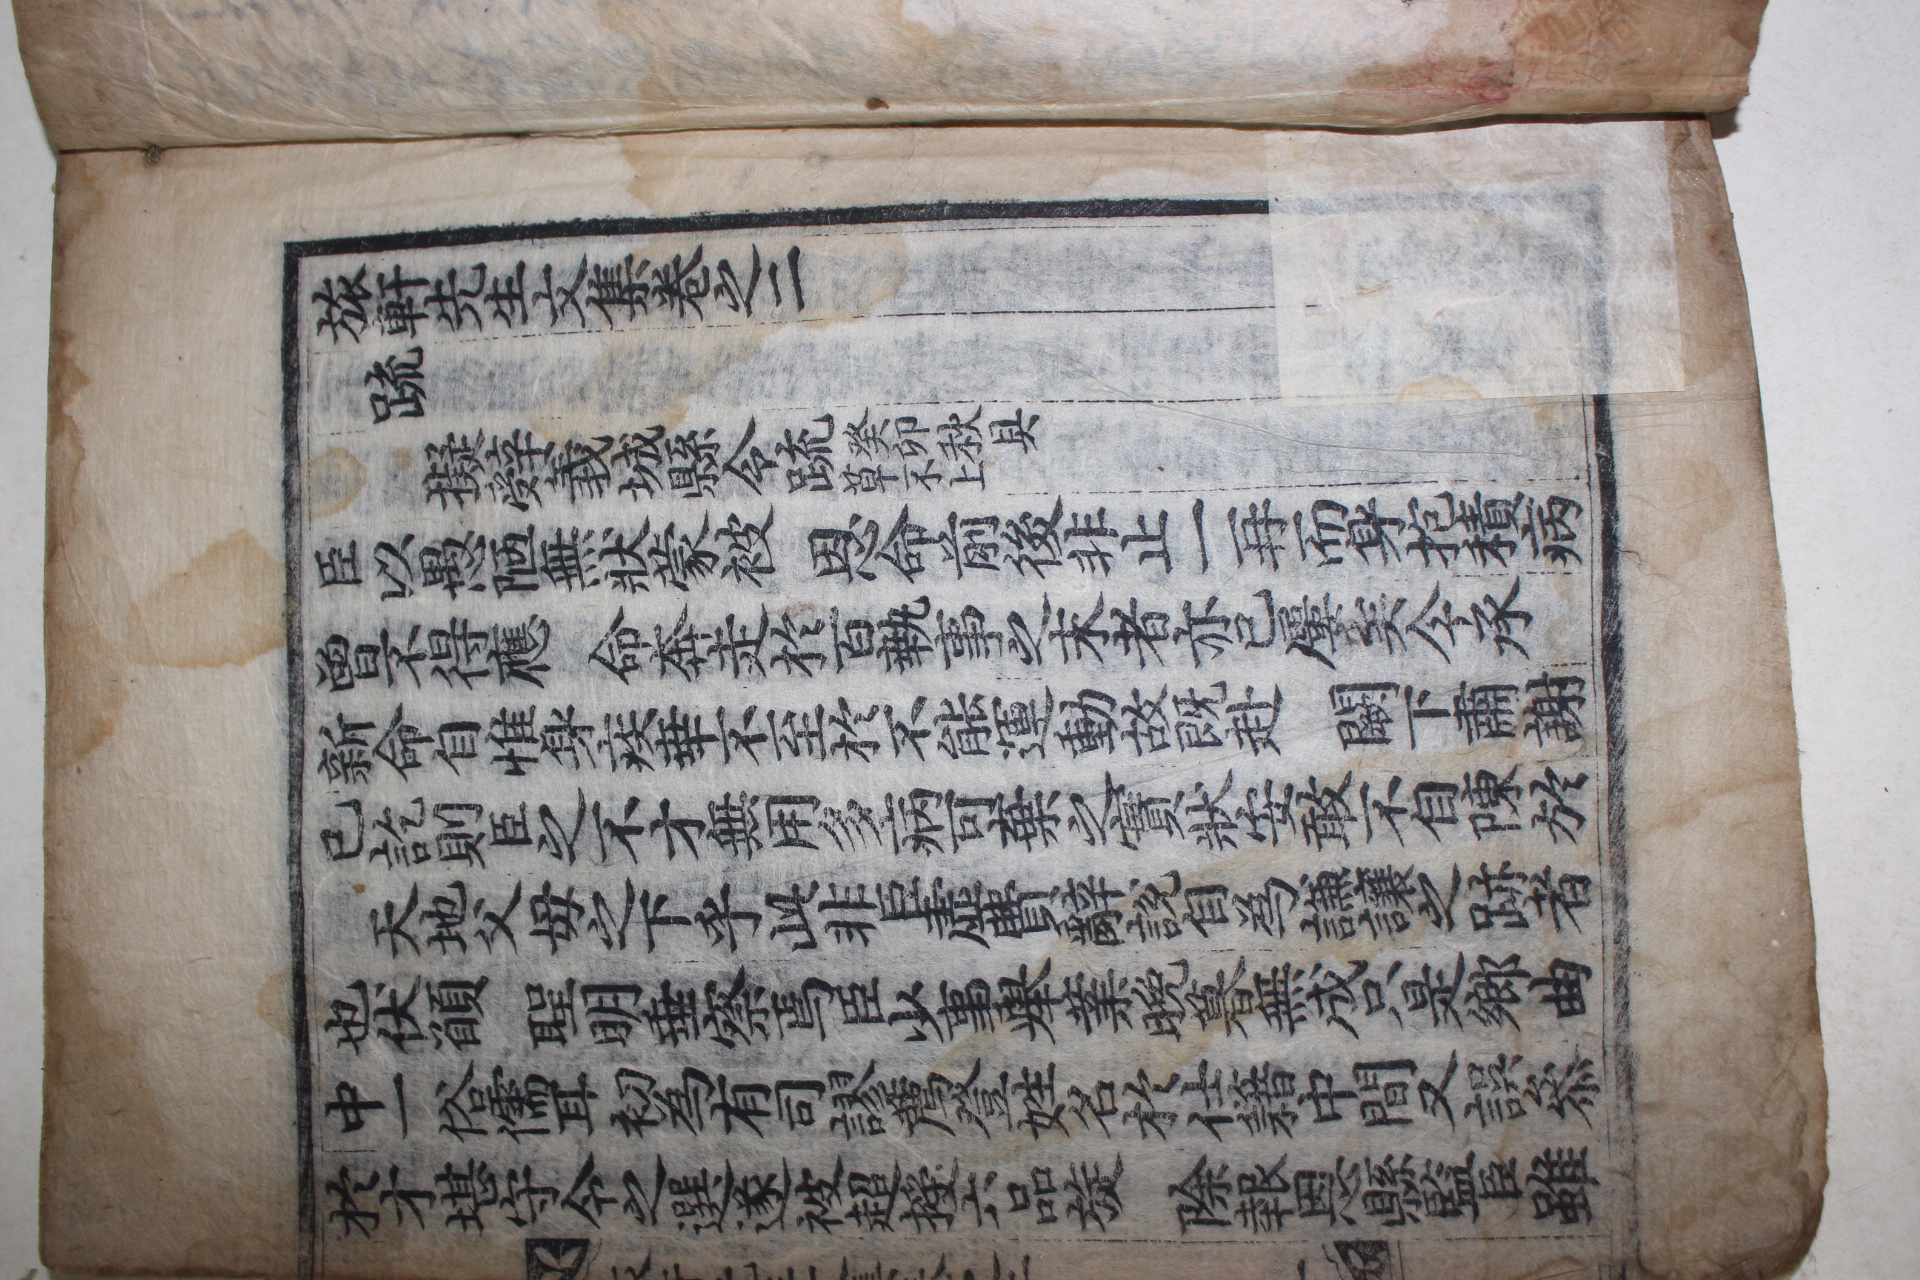 旅軒先生文集卷之二
疏
擬辭義城縣令疏 癸卯秋具草不上
臣以愚陋無狀蒙被 恩命前後非止一再而身抱積病
曾不得應 命奔走於百執事之末者亦已屢矣今承
新命自惟身疾幸不至於不能運動故旣赴 闕下肅謝
已訖則臣之不才無用多病可棄之實狀安敢不自陳於
天地父母之下乎此非臣虛費辭說自為謙讓之跡者
也伏願 聖明垂察焉臣少事擧業晩暮無成只是鄕曲
中一俗儒耳初為有司謬薦登姓名於仕籍中間又誤參
於才堪守令之選遂被超授六品旋 除報恩縣監臣雖